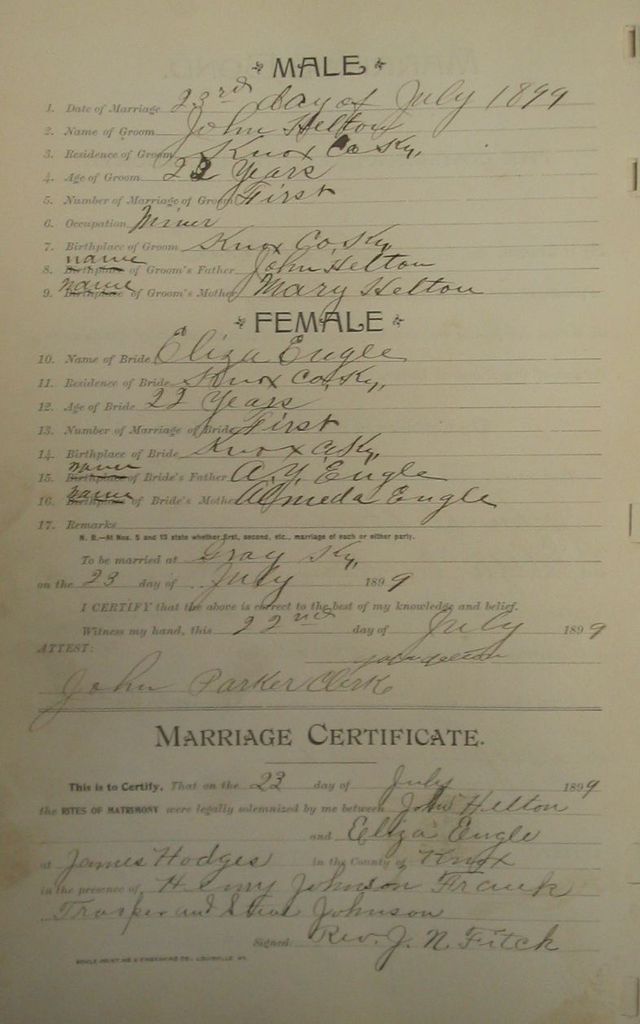 MALE
1. Date of Marriage 23rd day of July 1899
2. Name of Groom John Helton
3. Residence of Groom Knox Co Ky,
4. Age of Groom 22 Years
5. Number of Marriage of Groom First
6. Occupation Miner
7. Birthplace of Groom Knox Co, Ky
8. Birthplace name of Groom's Father John Helton
9. Birthplace name of Groom's Mother Mary Helton
FEMALE
10. Name of Bride Eliza Eugle
11. Residence of Bride Knox Co, Ky,
12. Age of Bride 22 Years
13. Number of Marriage of Bride First
14. Birthplace of Bride Knox Co Ky,
15. Birthplace name of Bride's Father A. Y. Eugle
16. Birthplace name of Bride's Mother Almeda Eugle
17. Remarks
N. B.—At Nos. 5 and 13 state whether first, second, etc., marriage of each or either party.
To be married at Gray Ky,
on the 23 day of July 1899
I CERTIFY that the above is correct to the best of my knowledge and belief.
Witness my hand, this 22nd day of July 1899
ATTEST:
John Helton
John Parker Clerk
MARRIAGE CERTIFICATE.
This is to Certify, That on the 23 day of July 1899
the RITES OF MATRIMONY were legally solemnized by me between John Helton
and Eliza Eugle
at James Hodges in the County of Knox
in the presence of Henry Johnson Frank
Trosper and Steve Johnson
Signed: Rev. J. N. Fitch